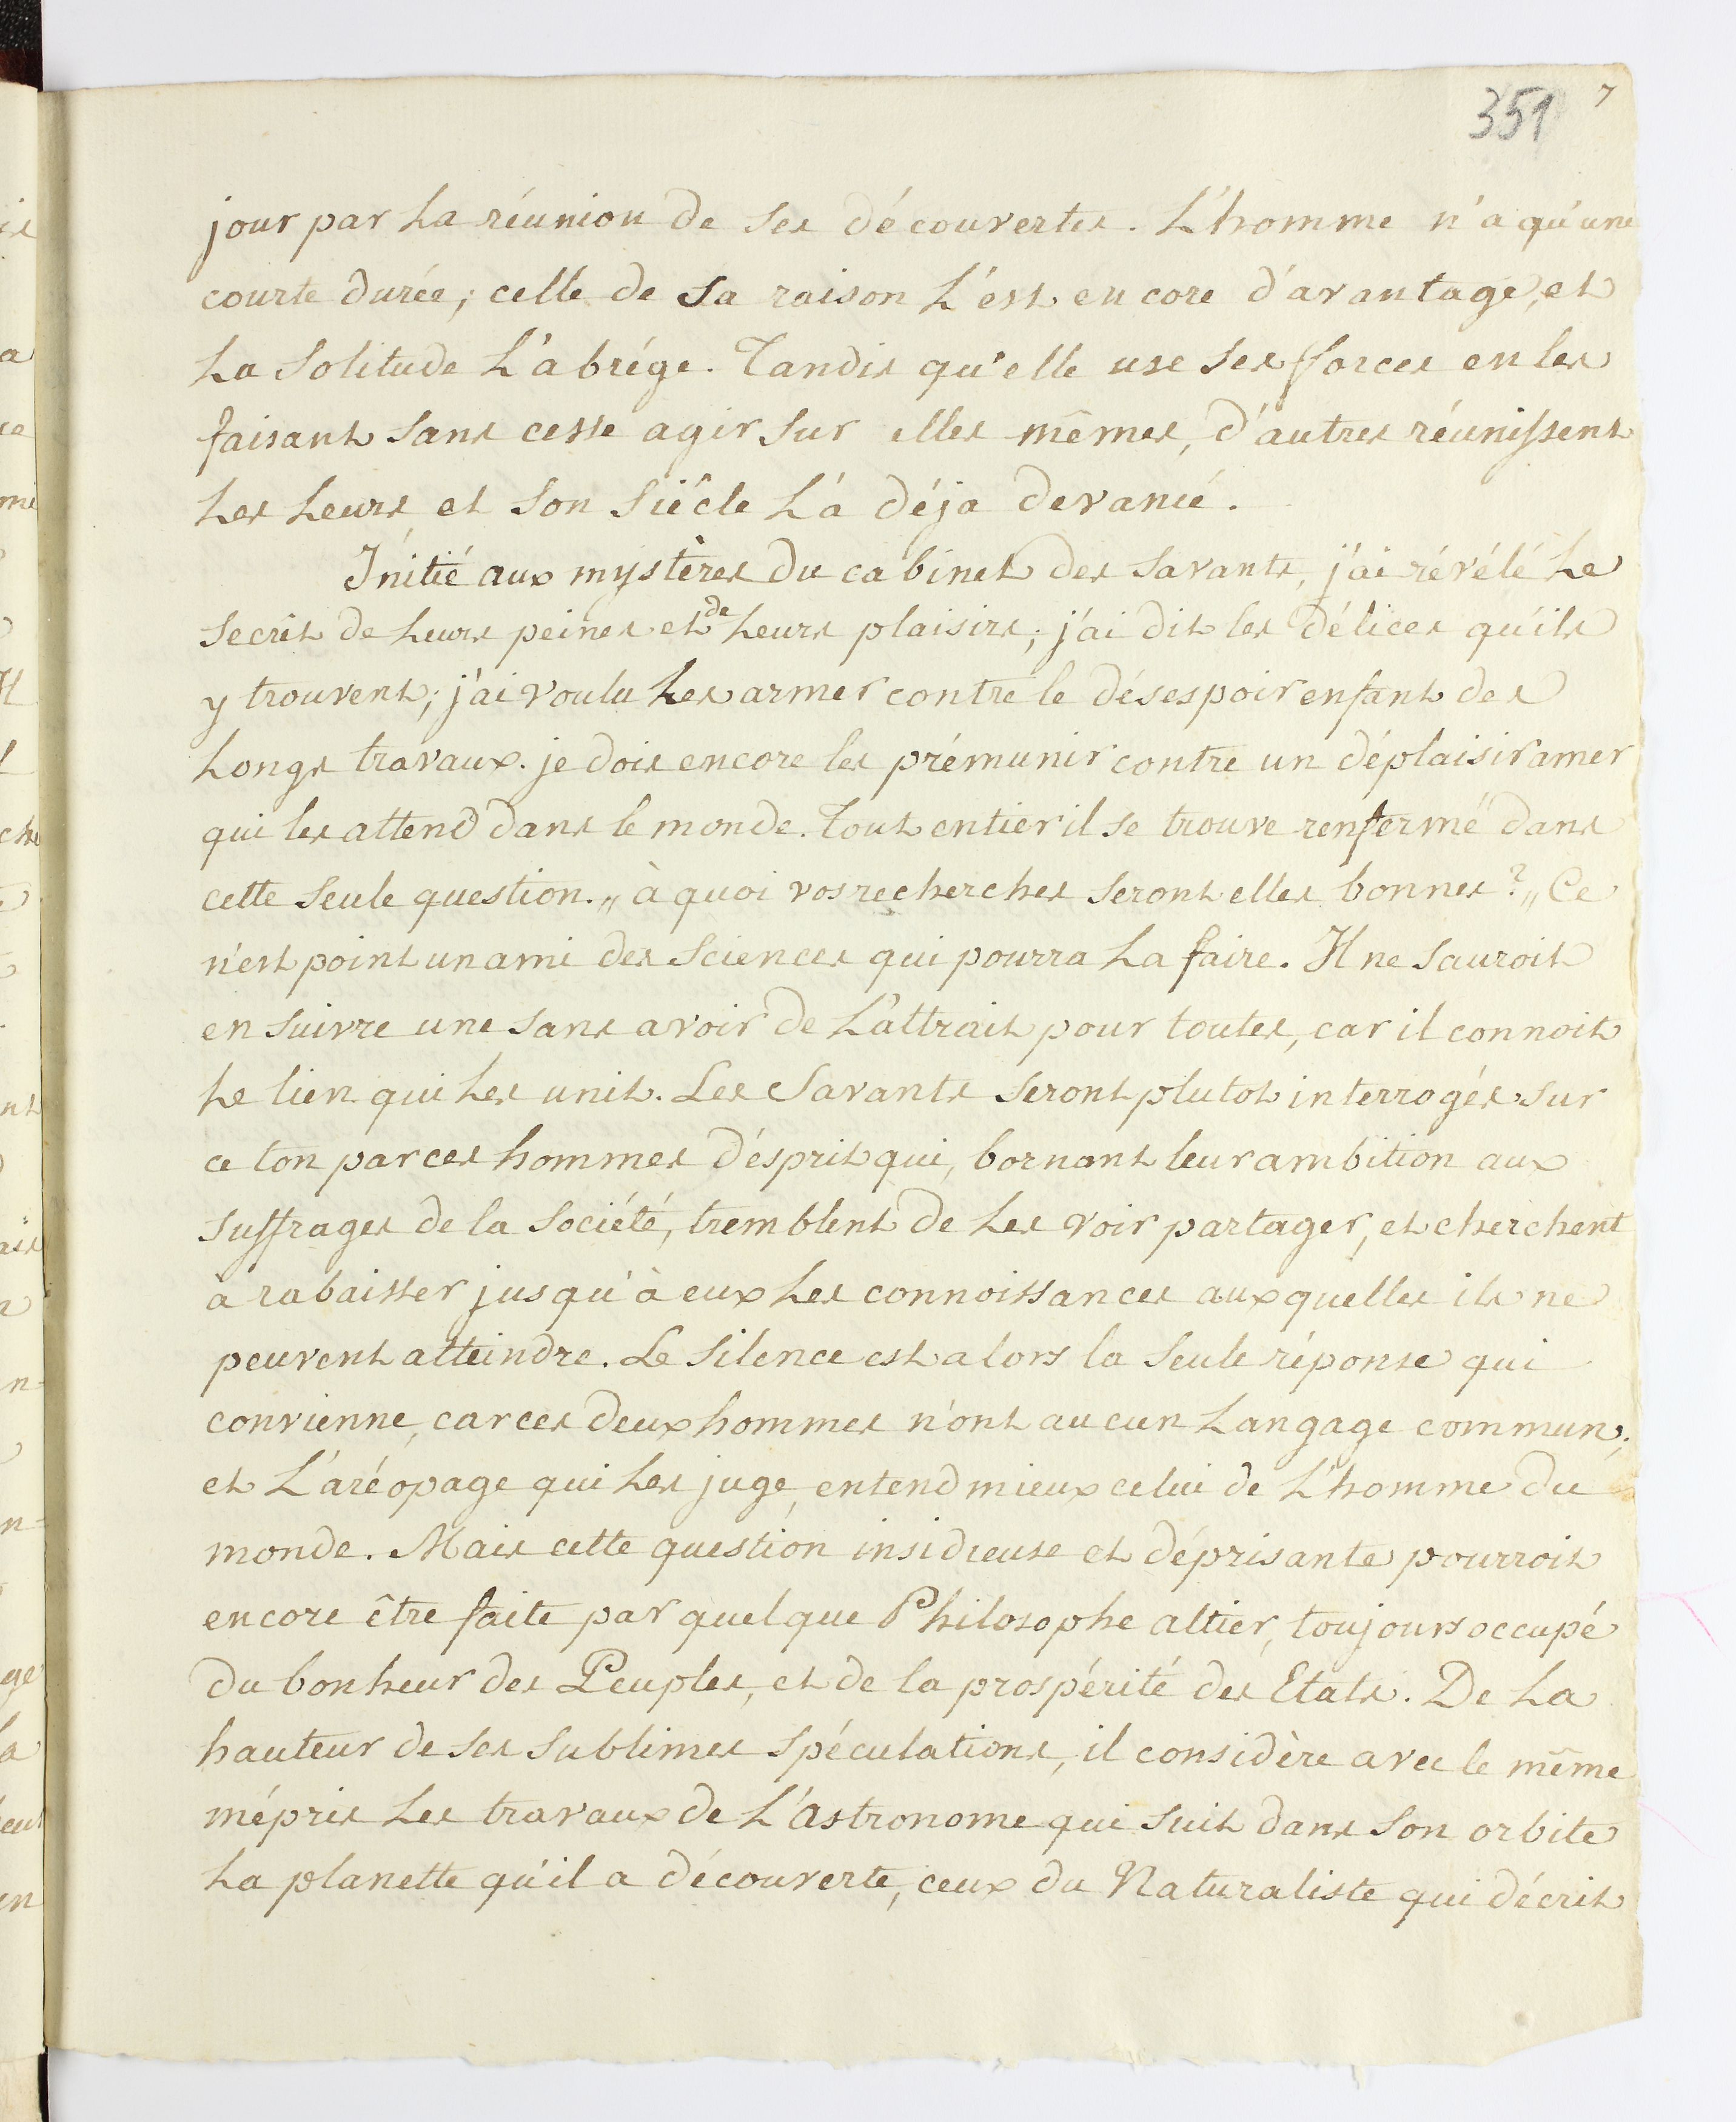 351 7
jour par la réunion de ses découvertes. L'homme n'a qu'une
courte durée; celle de sa raison l'est encore d'avantage, et
la solitude l'abrége. Tandis qu'elle use ses forces en les
faisant sans cesse agir sur elles mêmes, d'autres réunissent
les leurs et son siécle l'a déja devancé.
Initié aux mystères du cabinet des savants, j'ai révélé le
secrèt de leurs peines et de leurs plaisirs; j'ai dit les délices qu'ils
y trouvent; j'ai voulu les armer contre le désespoir enfant des
longs travaux. je dois encore les prémunir contre un déplaisir amer
qui les attend dans le monde. Tout entier il se trouve renfermé dans
cette seule question. „ à quoi vos recherches seront elles bonnes? „ Ce
n'est point un ami des sciences qui pourra la faire. Il ne sauroit
en suivre une sans avoir de l'attrait pour toutes, car il connoit
le lien qui les unit. Les Savants seront plutot interrogés sur
ce ton par ces hommes d'ésprit qui, bornant leur ambition aux
suffrages de la société, tremblent de les voir partager, et cherchent
à rabaisser jusqu'à eux les connoissances auxquelles ils ne
peuvent atteindre. Le silence est alors la seule réponse qui
convienne, car ces deux hommes n'ont aucun langage commun;
et l'aréopage qui les juge, entend mieux celui de l'homme du
monde. Mais cette question insidieuse et déprisante pourroit
encore être faite par quelque Philosophe altier, toujours occupé
du bonheur des Peuples, et de la prospérité des Etats. De la
hauteur de ses sublimes spéculations, il considère avec le même
mépris les travaux de l'Astronome qui suit dans son orbite
la planette qu'il a découverte, ceux du Naturaliste qui décrit